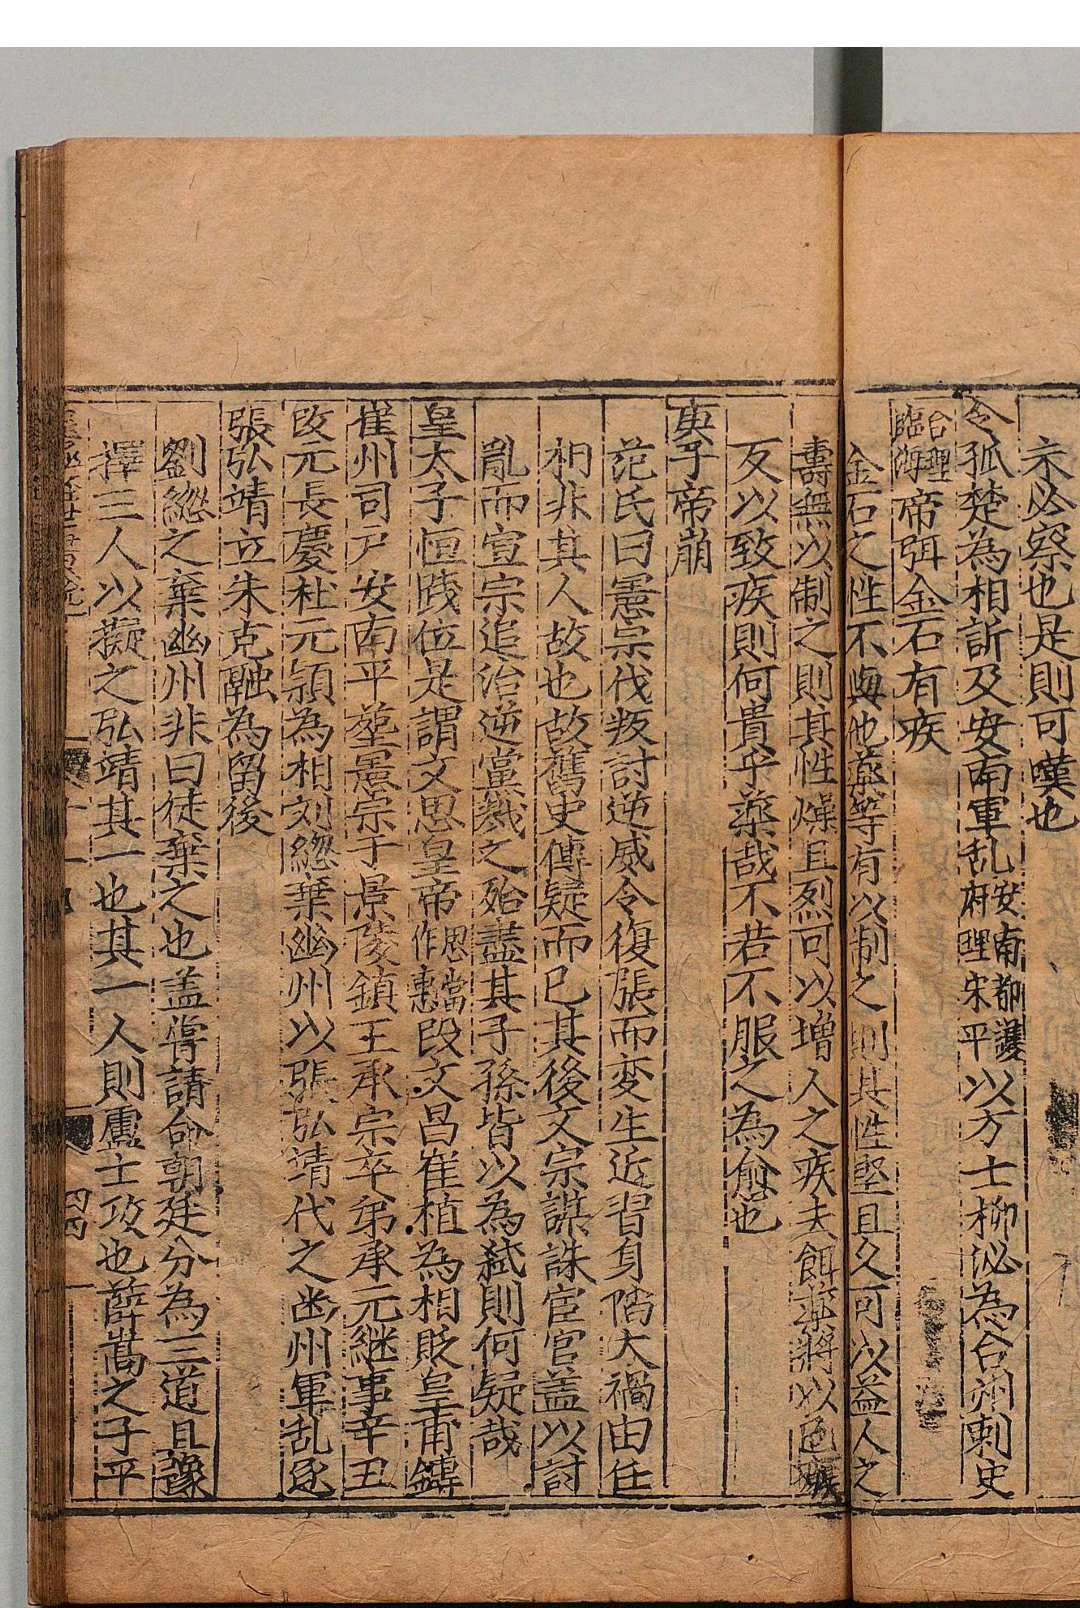 未必察也是則可嘆也
令狐楚為相訢及安南軍乱安南都護府理宋平以方士柳泌為台州刺史
台理臨海帝弭金石有疾
金石之性不與他藥等有以制之則其性堅且久可以益人之
壽無以制之則其性燥且烈可以增人之疾夫餌藥將以
反以致疾則何貴乎藥哉不若不服之為愈也
庚子帝崩
范氏曰憲宗伐叛討逆威令復張而変生近習身陷大禍由任
相非其人故也故舊史傳疑而已其後文宗謀誅宦官盖以討
亂而宣宗追治逆黨戮之殆盡其子孫皆以為弑則何疑哉
皇太子恒踐位是謂文思皇帝思當作惠段文昌崔植為相貶皇甫鏄
崔州司戶安南平塟憲宗于景陵鎮王承宗卒弟承元継事辛丑
改元長慶杜元頴為相刘緫棄幽州以張弘靖代之幽州軍乱逐
張弘靖立朱克融為留後
劉緫之棄幽州非曰徒棄之也盖甞請命朝廷分為三道且豫
擇三人以擬之弘靖其一也其一人則盧士玫也薛嵩之子平